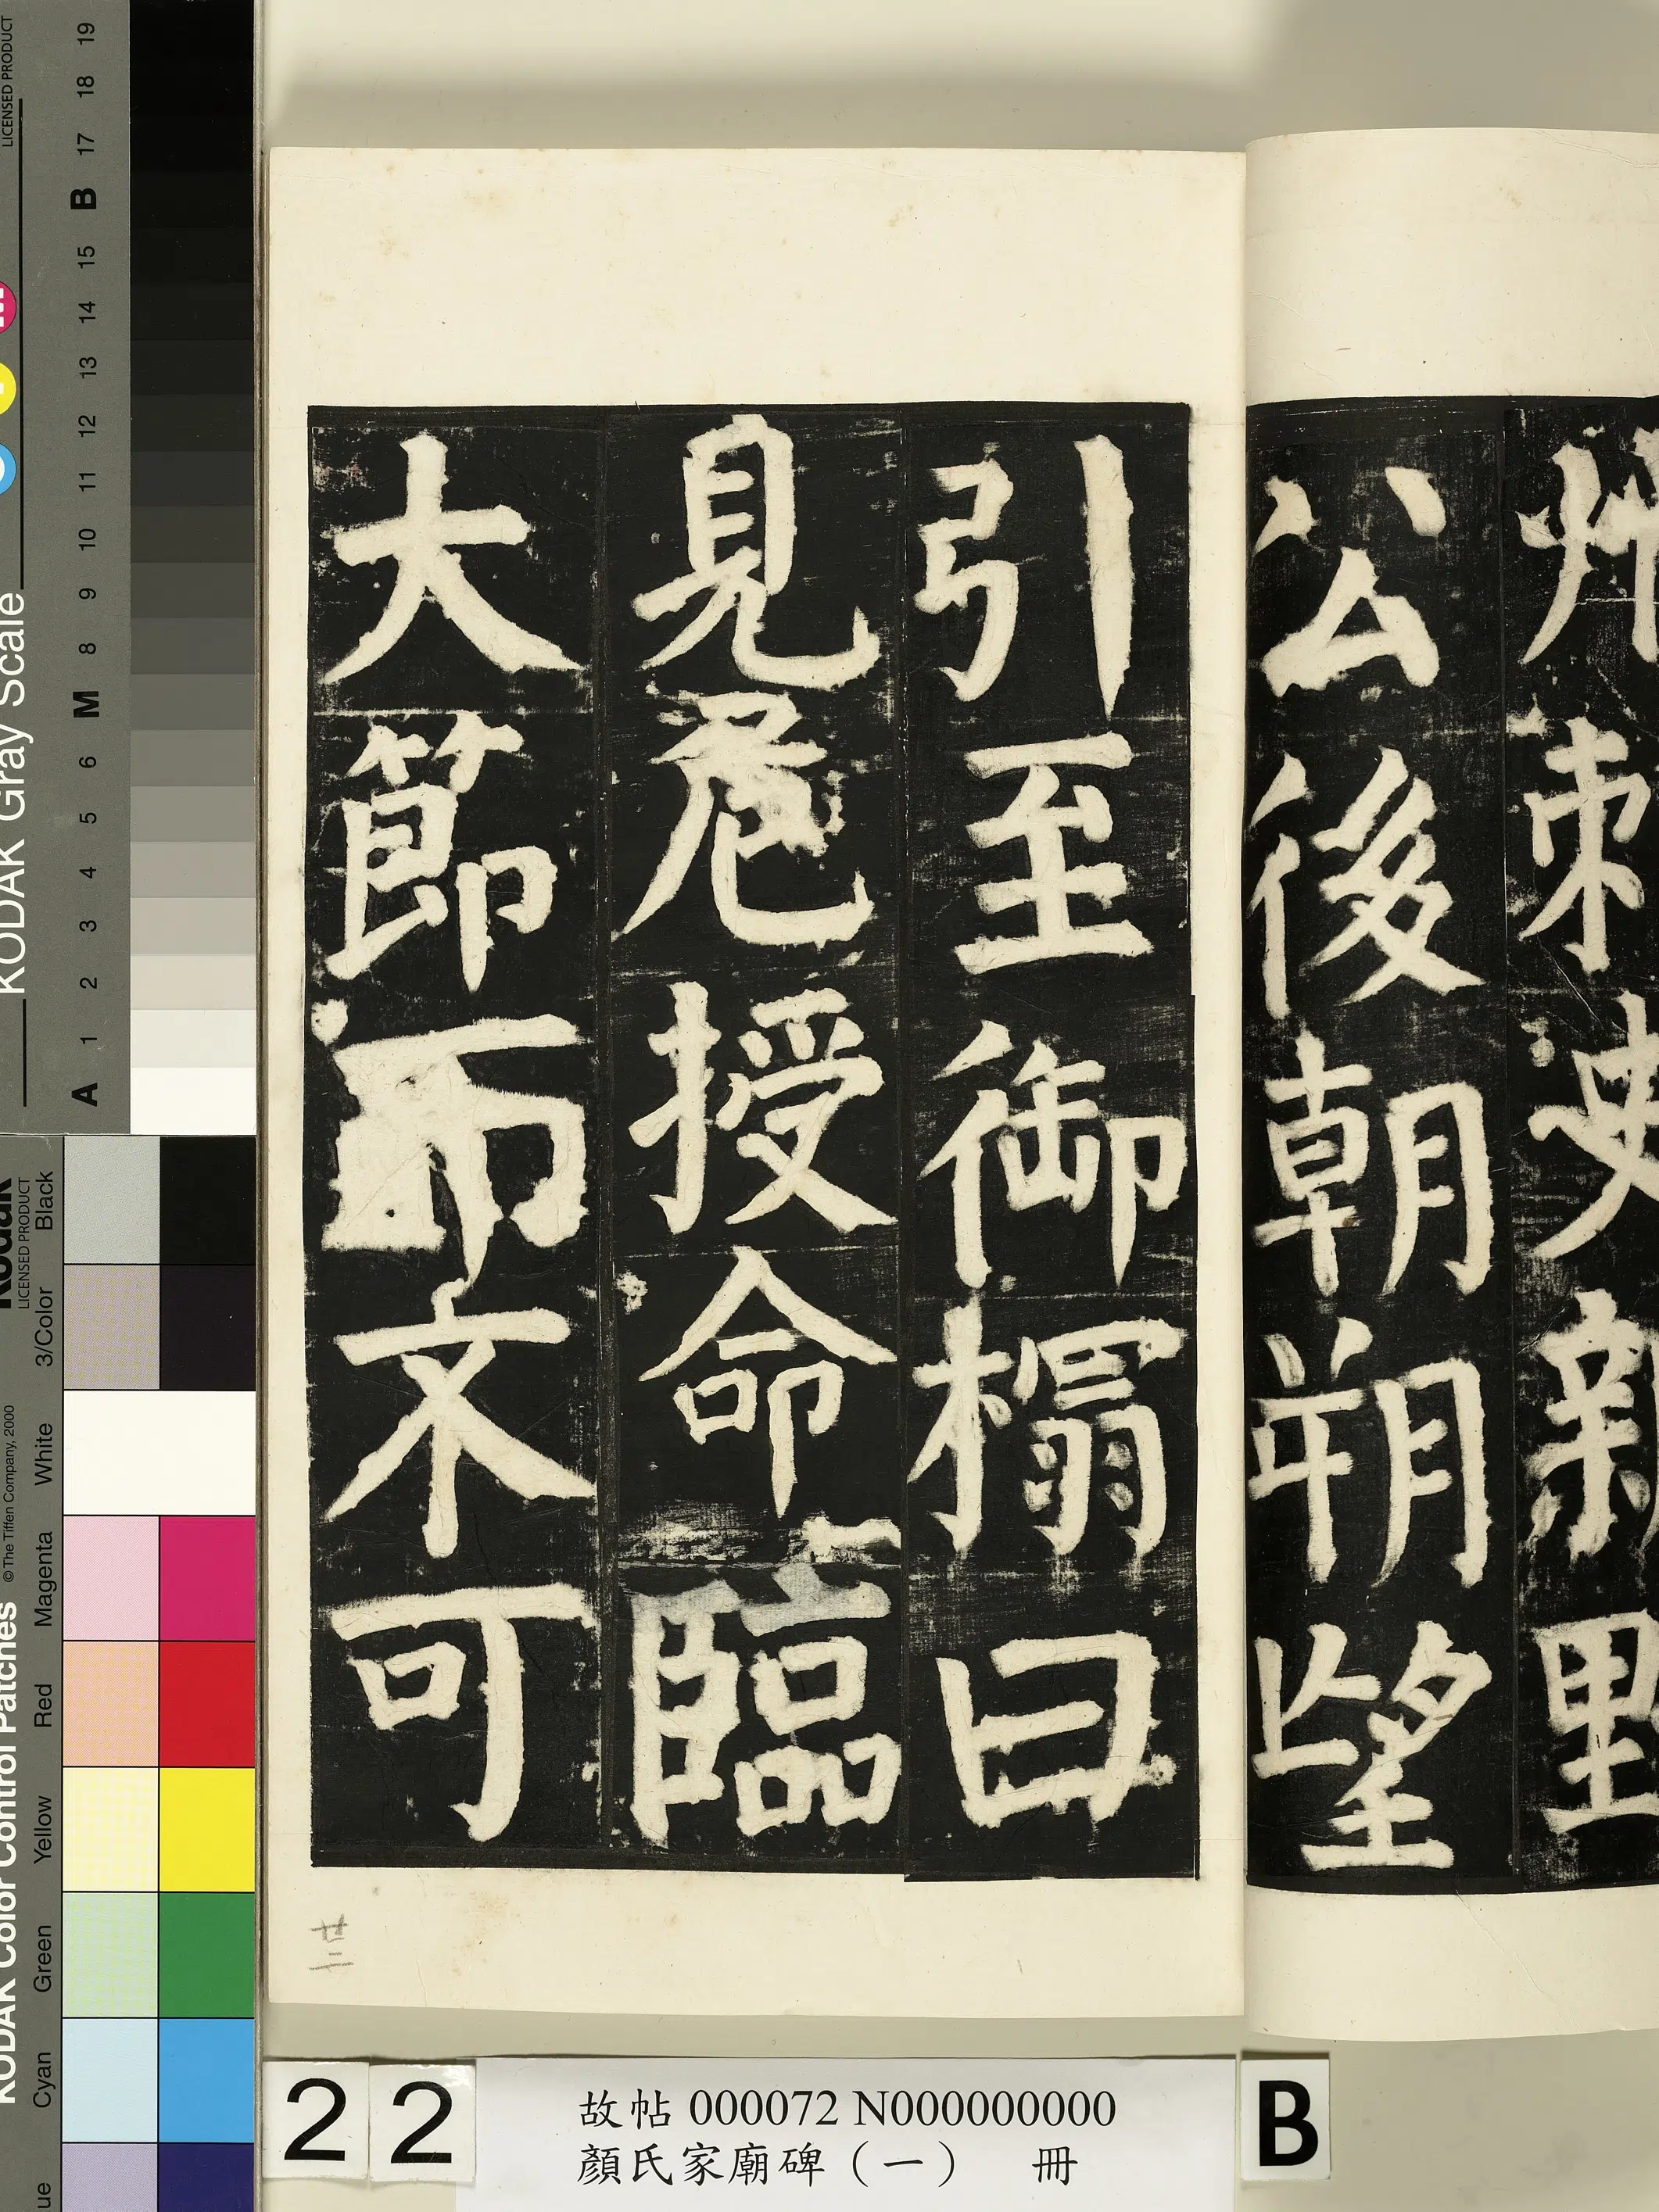 州刺史新野
公後朝朔望
引至御榻曰
見危授命臨
大節而不可
廿二
22
故帖 000072 N000000000
顏氏家廟碑（一） 冊
B
KODAK Gray Scale
LICENSED PRODUCT
A 1 2 3 4 5 6 M 8 9 10 11 12 13 14 15 B 17 18 19
KODAK Color Control Patches
© The Tiffen Company, 2000
Kodak
LICENSED PRODUCT
Cyan Green Yellow Red Magenta White 3/Color Black